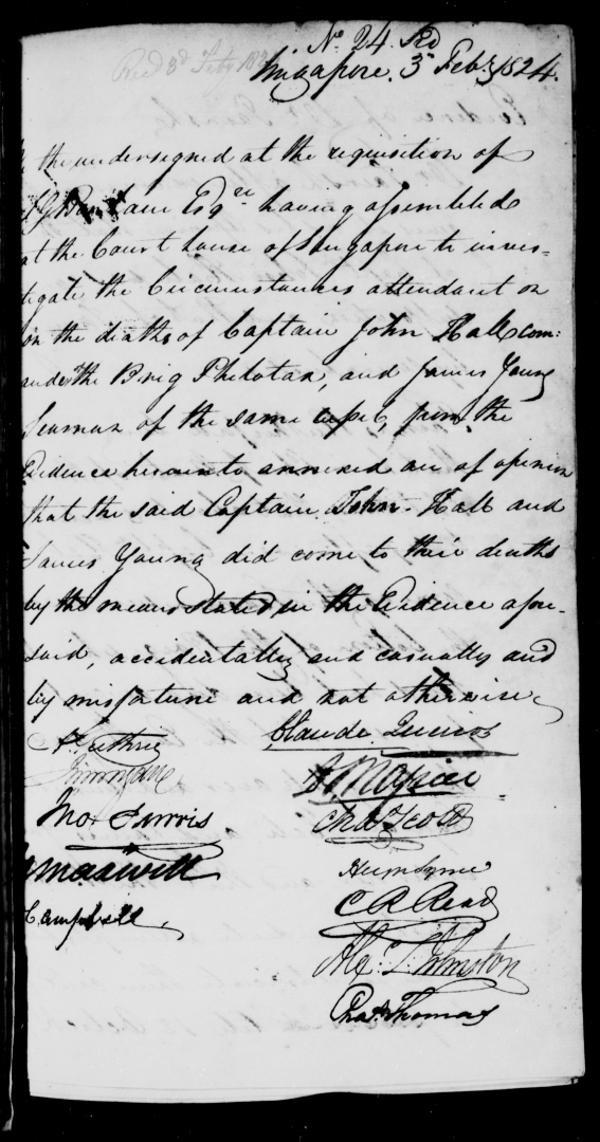 No. 24.
Recd 3d Feby
Singapore. 3rd Feby. 1824.
the undersigned at the requisition of
Esqre having assembled
at the Court house of Singapore to inves=
tigate the Circumstances attendant on
on the deaths of Captain John Hall com:
ander the Brig Philotax, and James Young
Seaman of the same , from the
Evidence hereunto annexed are of opinion
that the said Captain John Hall and
James Young did come to their deaths
by the means stated in the Evidence afore-
said, accidentally and casually and
by misfortune and not otherwise
Guthrie
Claude Queiros
Jno Purvis
Chas Scott
Maxwell
Hugh Syme
Campbell
C R Read
Alex L Johnston
Chas Thomas